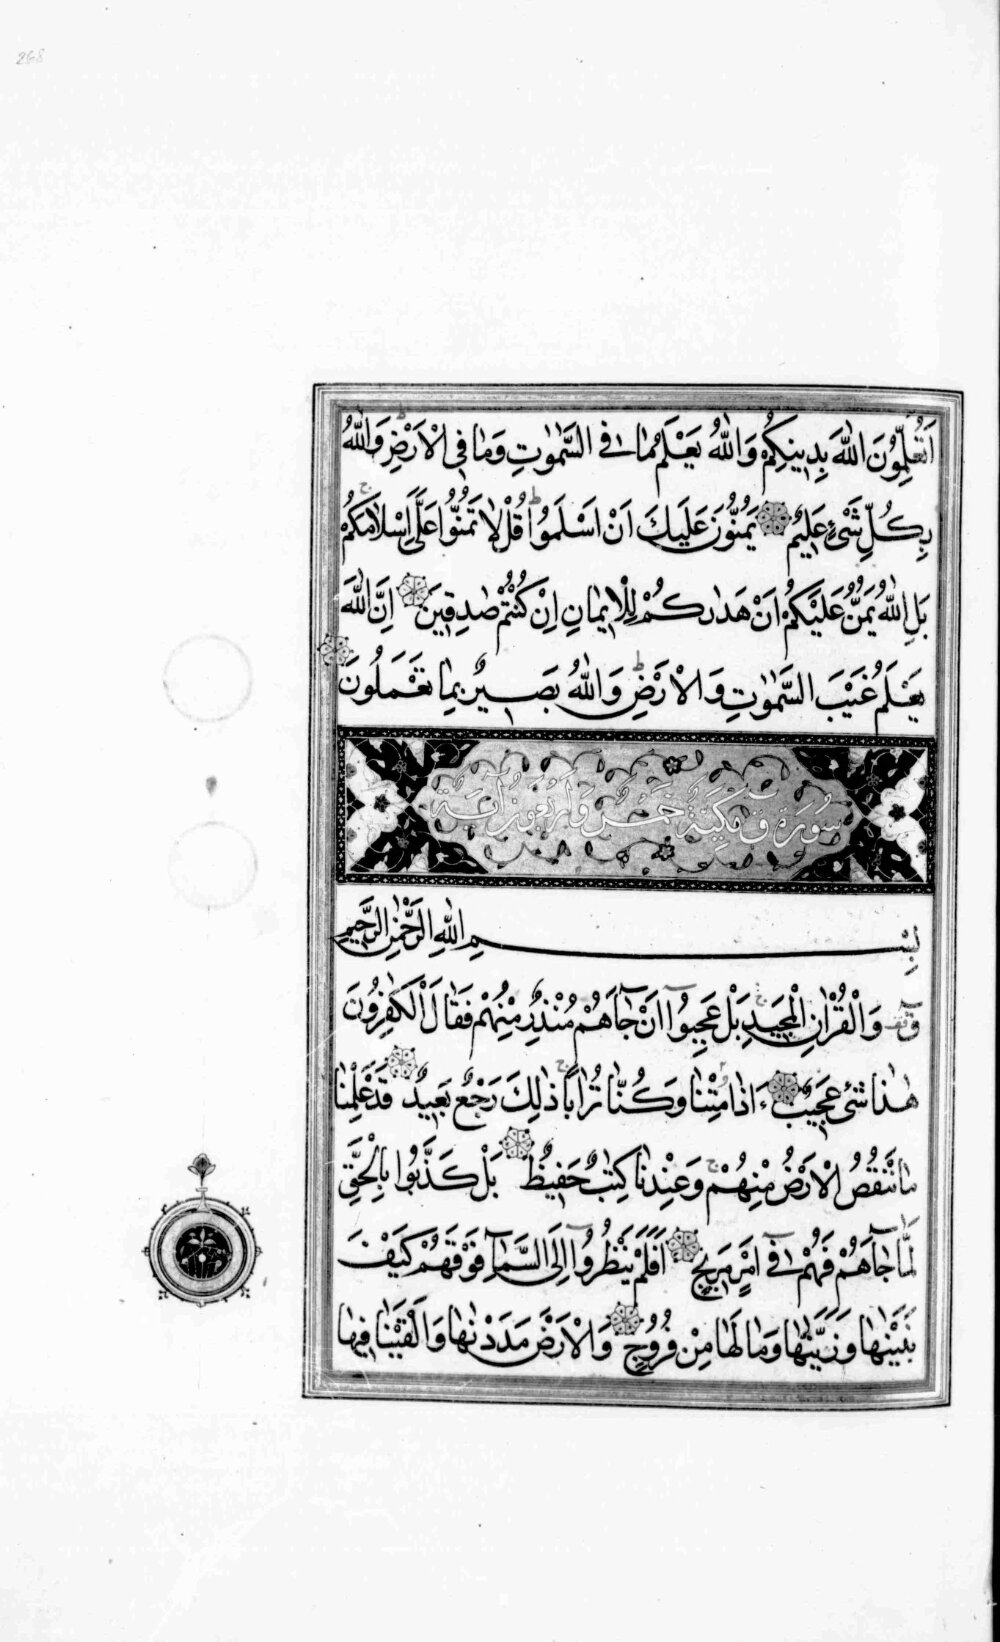 268
اَتُعَلِّمُونَ اللّٰهَ بِدِينِكُمْ وَاللّٰهُ يَعْلَمُ مَا فِي السَّمٰوٰتِ وَمَا فِي الْاَرْضِ وَاللّٰهُ
بِكُلِّ شَيْءٍ عَلِيمٌ يَمُنُّونَ عَلَيْكَ اَنْ اَسْلَمُوا قُلْ لَا تَمُنُّوا عَلَيَّ اِسْلَامَكُمْ
بَلِ اللّٰهُ يَمُنُّ عَلَيْكُمْ اَنْ هَدٰيكُمْ لِلْاِيمَانِ اِنْ كُنْتُمْ صٰدِقِينَ اِنَّ اللّٰهَ
يَعْلَمُ غَيْبَ السَّمٰوٰتِ وَالْاَرْضِ وَاللّٰهُ بَصِيرٌ بِمَا تَعْمَلُونَ
سُورَةُ قٓ مَكِّيَّةٌ خَمْسٌ وَاَرْبَعُونَ اٰيَة
بِسْمِ اللّٰهِ الرَّحْمٰنِ الرَّحِيمِ
قٓ وَالْقُرْاٰنِ الْمَجِيدِ بَلْ عَجِبُوا اَنْ جَاءَهُمْ مُنْذِرٌ مِنْهُمْ فَقَالَ الْكٰفِرُونَ
هٰذَا شَيْءٌ عَجِيبٌ ءَاِذَا مِتْنَا وَكُنَّا تُرَابًا ذٰلِكَ رَجْعٌ بَعِيدٌ قَدْ عَلِمْنَا
مَا تَنْقُصُ الْاَرْضُ مِنْهُمْ وَعِنْدَنَا كِتٰبٌ حَفِيظٌ بَلْ كَذَّبُوا بِالْحَقِّ
لَمَّا جَاءَهُمْ فَهُمْ فِي اَمْرٍ مَرِيجٍ اَفَلَمْ يَنْظُرُوا اِلَى السَّمَاءِ فَوْقَهُمْ كَيْفَ
بَنَيْنٰهَا وَزَيَّنّٰهَا وَمَا لَهَا مِنْ فُرُوجٍ وَالْاَرْضَ مَدَدْنٰهَا وَاَلْقَيْنَا فِيهَا